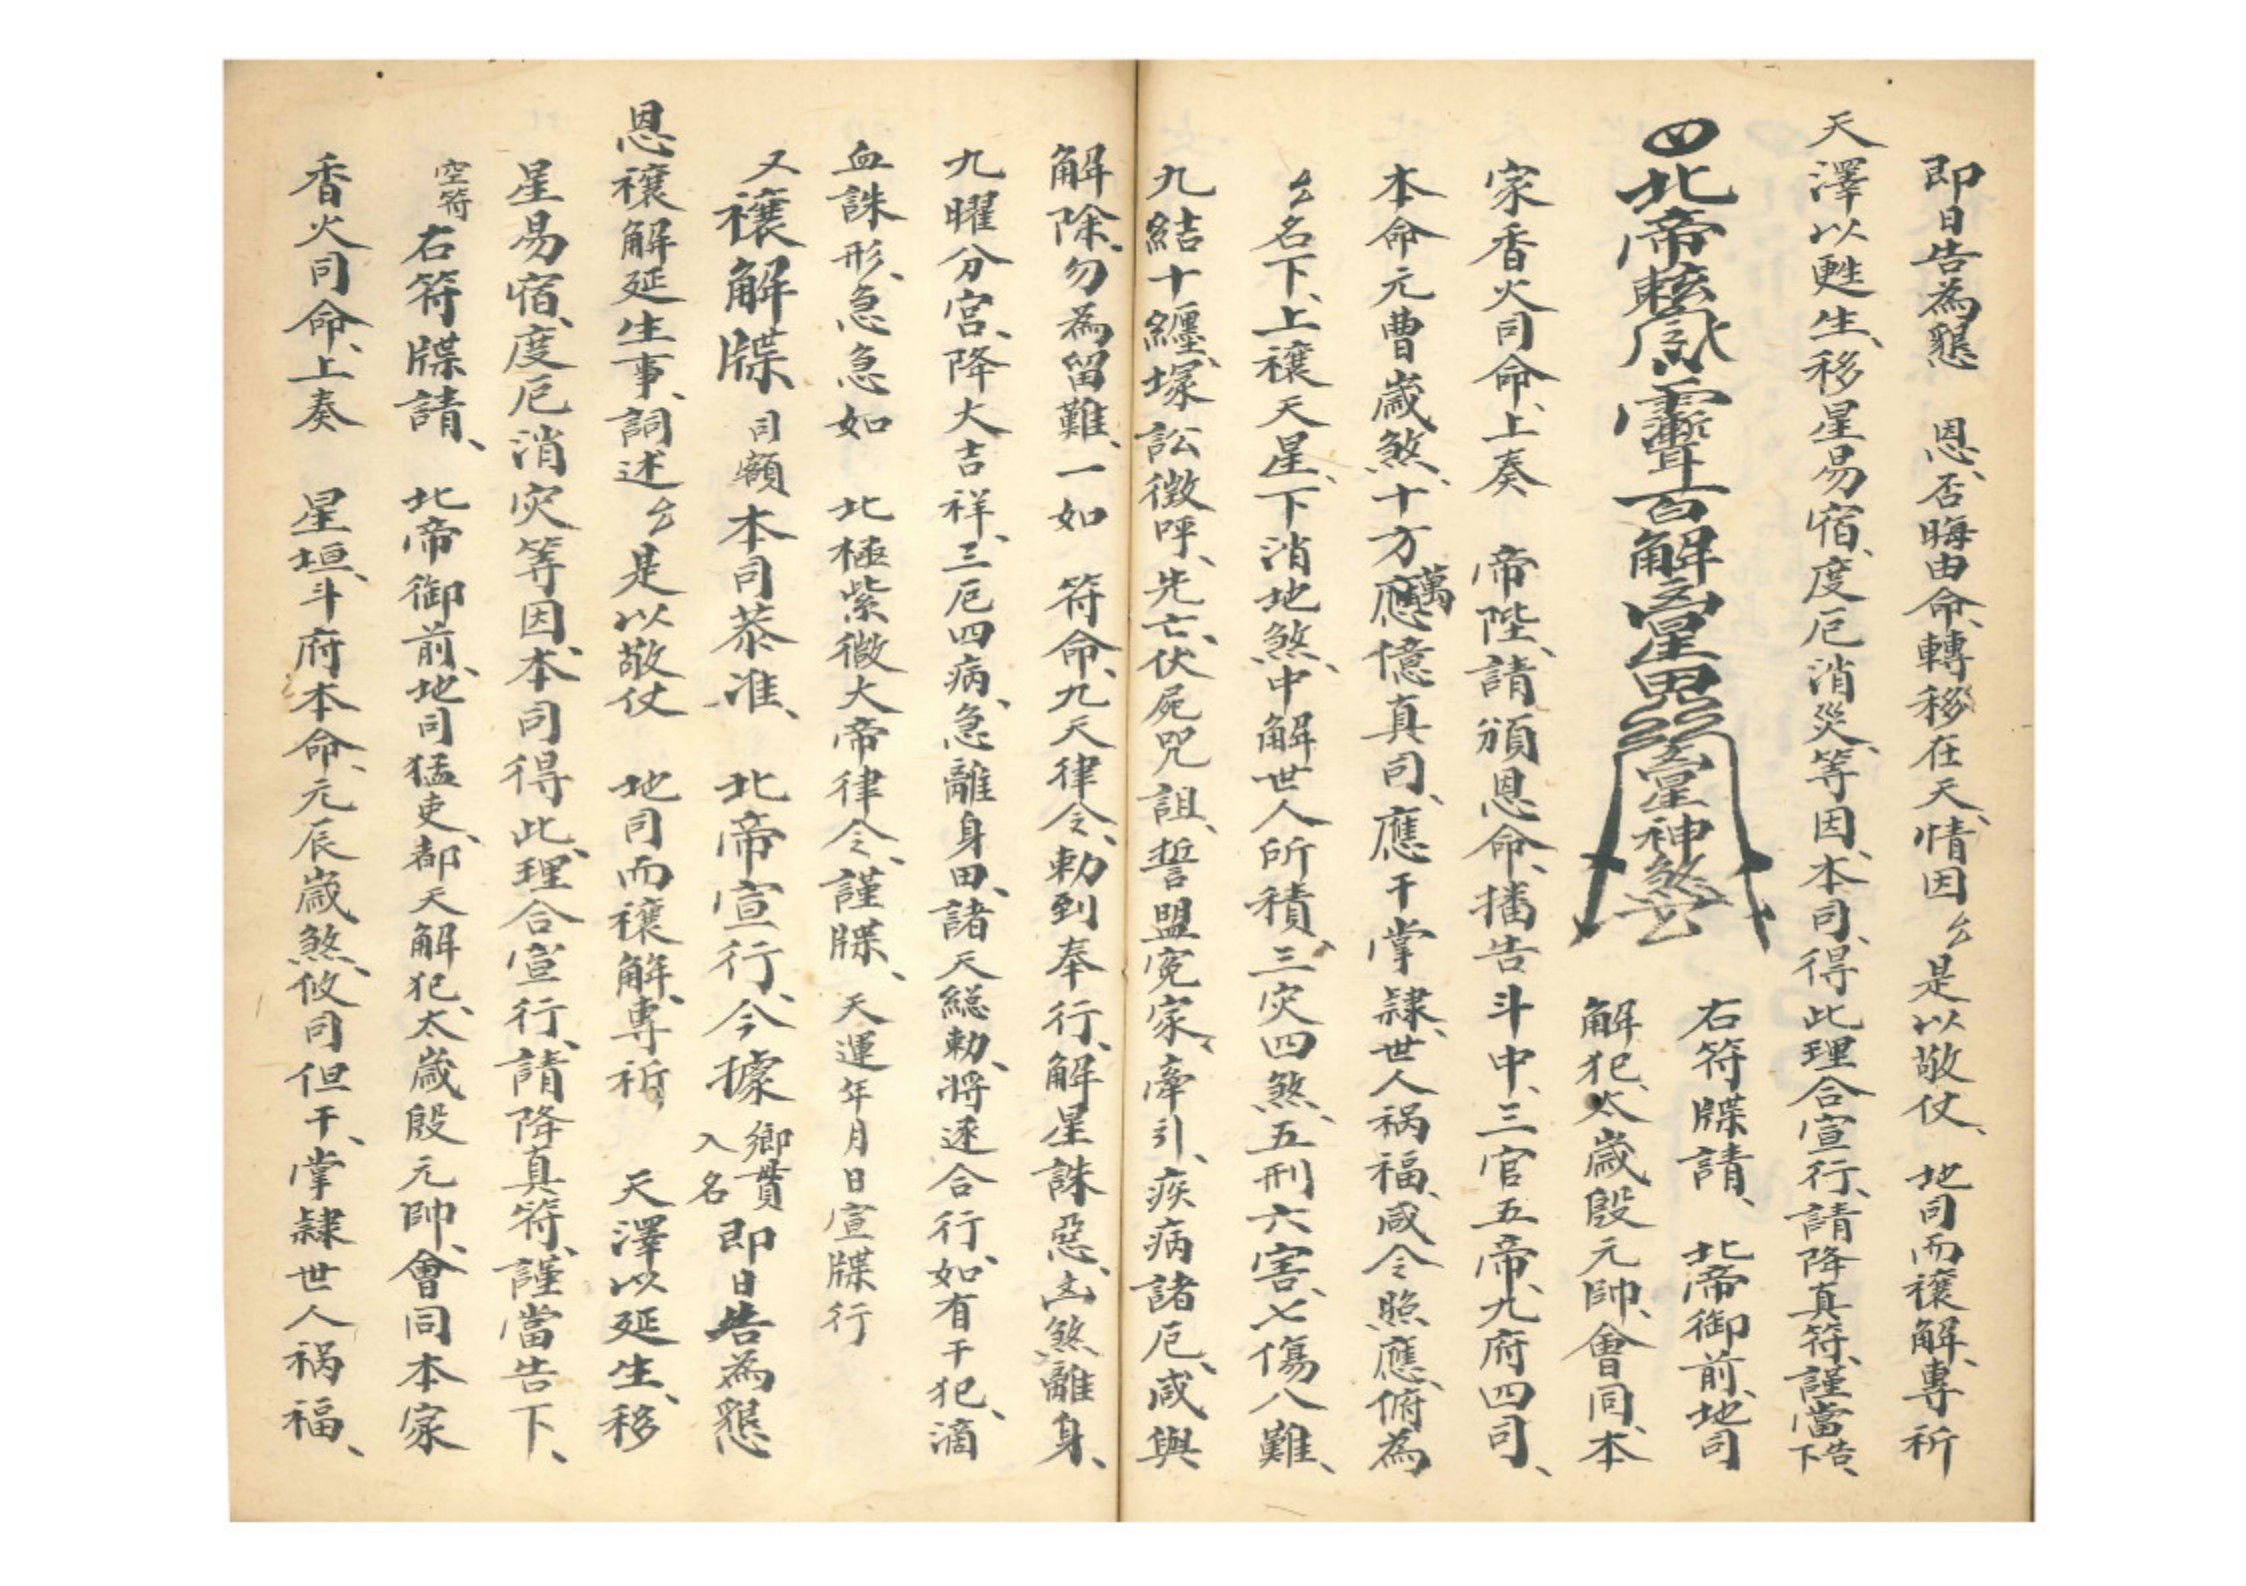 即日告為懇　恩、否晦由命、轉移在天、情因厶是以敬仗、地司而禳解、專祈
天澤以甦生、移星易宿、度厄消災、等因、本司、得此理合宣行、請降真符、謹當告下、
北帝
百解
星神煞
右符牒請、北帝御前、地司
解犯、太歲殷元帥、會同、本
家香火司命、上奏　帝陛、請頒恩命、播告斗中、三官五帝、九府四司、
本命元曹歲煞、十方萬應億真司、應干掌隸、世人禍福、咸令照應、俯為
厶名下、上禳天星、下消地煞、中解世人所積、三灾四煞、五刑六害、七傷八難、
九結十纏、塚訟徵呼、先亡、伏屍咒詛、誓盟寃家、牽引、疾病諸厄、咸與
解除、勿為留難、一如　符命、九天律令、勅到奉行、解星誅惡、凶煞離身、
九曜分宮、降大吉祥、三厄四病、急離身田、諸天総勅、將逐合行、如有干犯、滴
血誅形、急急如　北極紫微大帝律令、謹牒、天運年月日宣牒行
又禳解牒　司額　本司恭准、北帝宣行、今據　鄉貫入名　即日告為懇
恩禳解延生事、詞述厶是以敬仗　地司而禳解、專祈　天澤以延生、移
星易宿、度厄消灾等因、本司得此、理合宣行、請降真符、謹當告下、
空符　右符牒請、北帝御前、地司猛吏、都天解犯、太歲殷元帥、會同本家
香火司命、上奏　星垣、斗府本命、元辰歲煞、攸司但干、掌隸世人禍福、